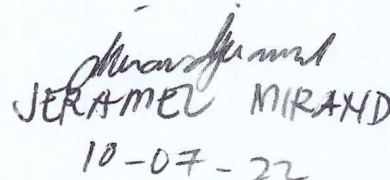 JERAMEL MIRAND
10-07-22